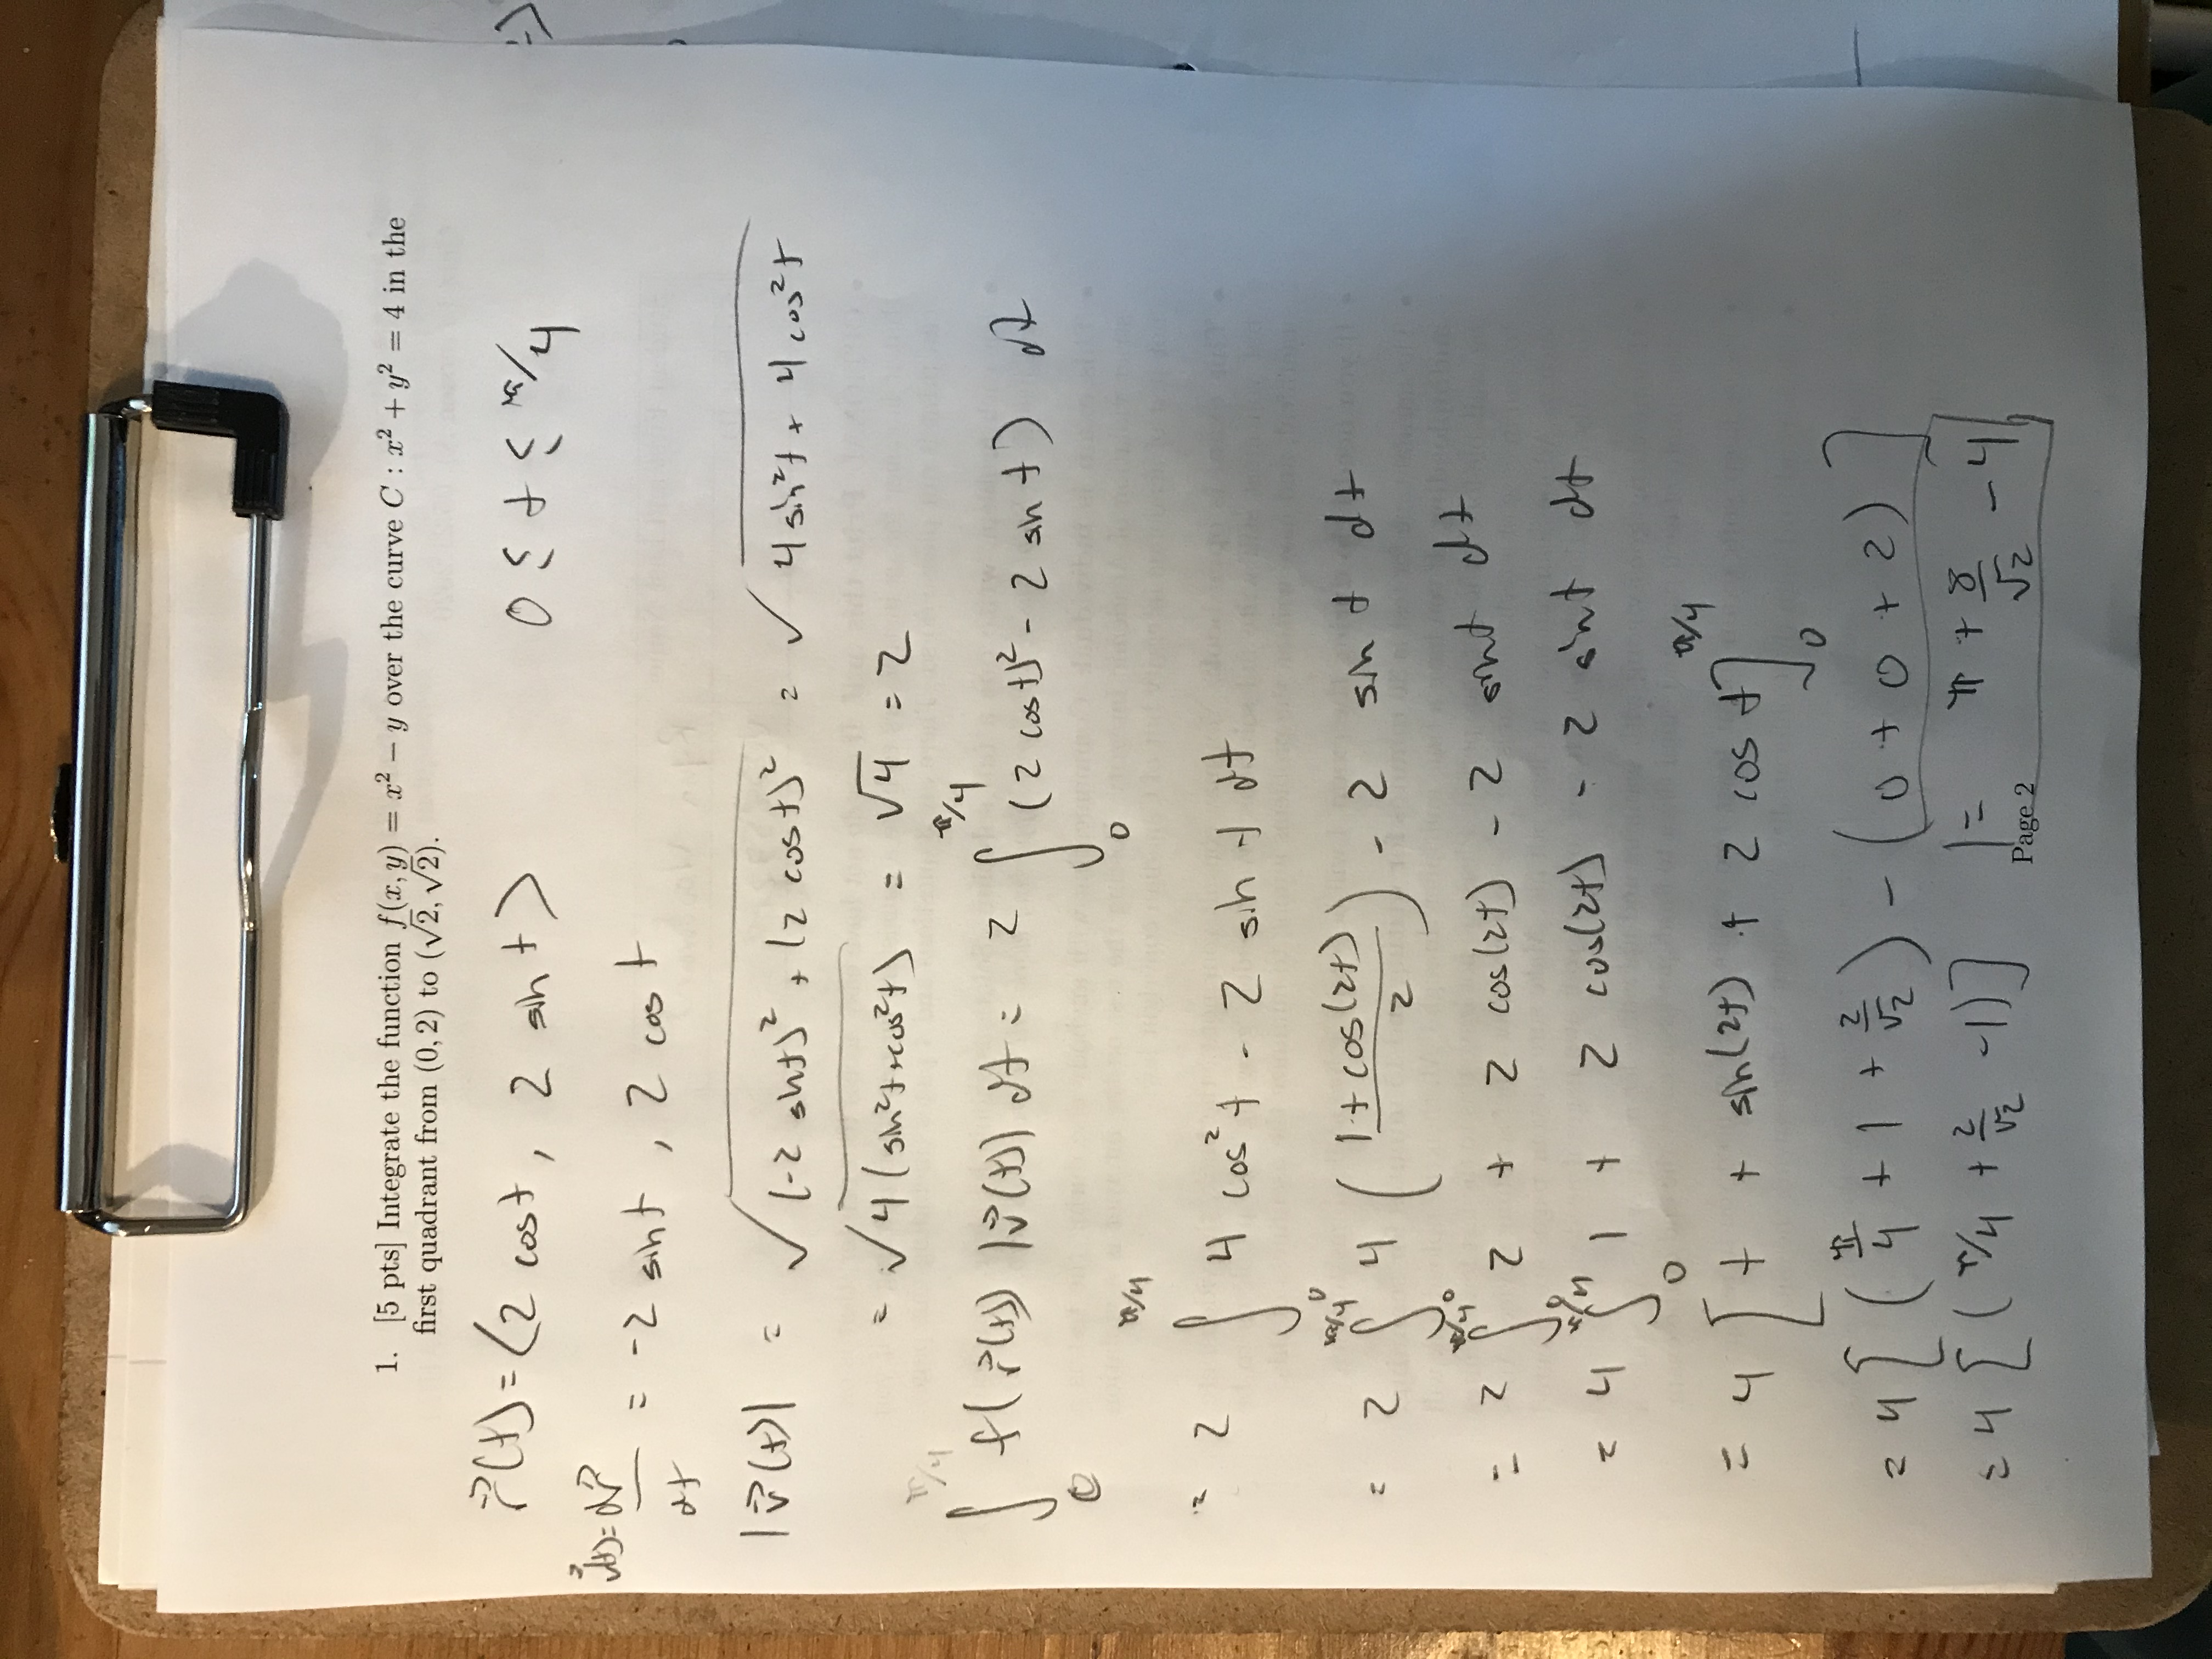 1. [5 pts] Integrate the function f(x, y) = x² − y over the curve C : x² + y² = 4 in the
first quadrant from (0, 2) to (√2, √2).
r⃗(t) = ⟨2 cos t, 2 sin t⟩ 0 ≤ t ≤ π/4
v⃗(t) = dr⃗/dt = -2 sin t, 2 cos t
|v⃗(t)| = √((-2 sin t)² + (2 cos t)²) = √(4 sin² t + 4 cos² t)
= √(4(sin² t + cos² t)) = √4 = 2
∫₀^(π/4) f(r⃗(t)) |v⃗(t)| dt = 2 ∫₀^(π/4) (2 cos t)² - 2 sin t) dt
= 2 ∫₀^(π/4) 4 cos² t - 2 sin t dt
= 2 ∫₀^(π/4) 4 ((1 + cos(2t))/2) - 2 sin t dt
= 2 ∫₀^(π/4) 2 + 2 cos(2t) - 2 sin t dt
= 4 ∫₀^(π/4) 1 + 2 cos(2t) - 2 sin t dt
= 4 [t + sin(2t) + 2 cos t]₀^(π/4)
= 4 [(π/4 + 1 + 2/√2) - (0 + 0 + 2)]
= 4 [(π/4 + 2/√2 - 1)] = π + 8/√2 - 4
Page 2